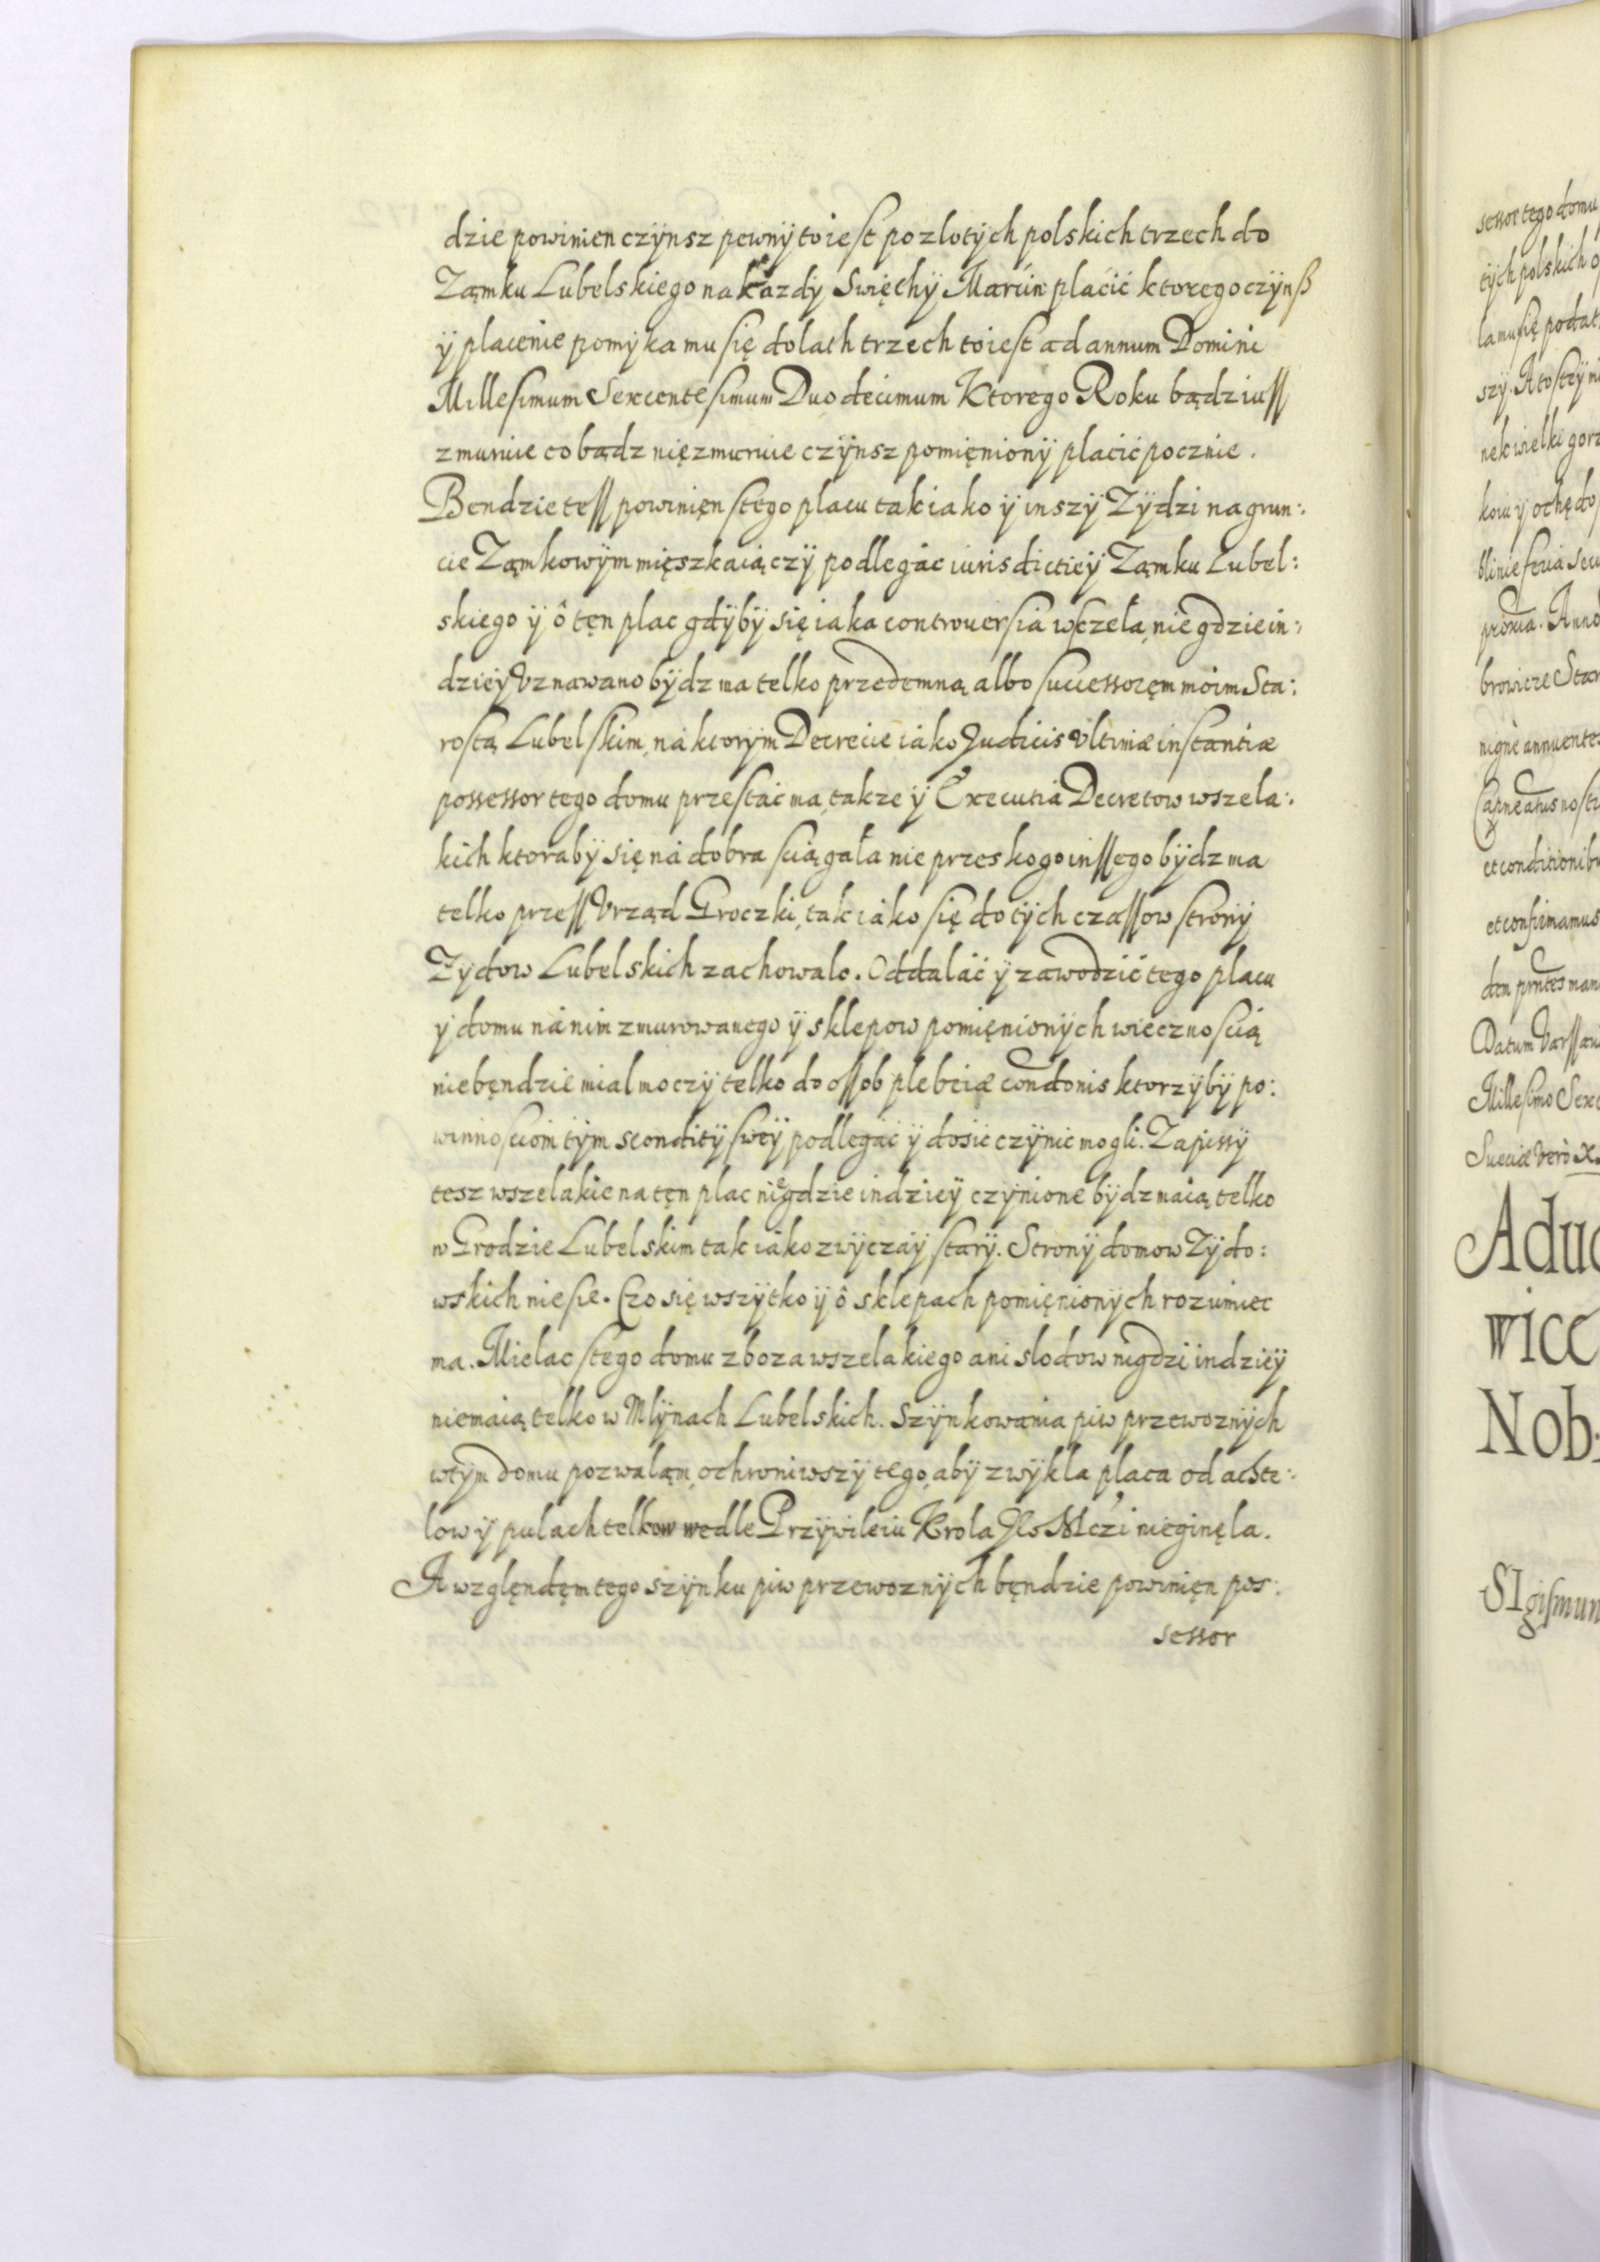 dzie powinien czÿnsz pewnÿ to iest po zlotÿch polskich trzech do
Ząmku Lubelskiego na kazdÿ Swięchÿ Marćin plaćić ktorego czÿnß
ÿ placenie pomÿka mu się do lath trzech to iest ad annum Domini
Millesimum Sexcentesimum Duodecimum Ktorego Roku bądz iuss
zmuruie co bądz nięzmuruie czÿnsz pomięnionÿ placić pocznie.
Bendzie tess powinięn stego placu tak iako ÿ inszÿ Zÿdzi na grun:
cie Ząmkowÿm mięszkaiączÿ podlegać iurisdictieÿ Ząmku Lubel:
skiego ÿ ô tęn plac gdÿbÿ się iaka controuersia wczela, nie gdzie in:
dzieÿ Vznawano bÿdz ma telko przedemną albo successoręm moim Sta:
rostą Lubelskim, na ktorÿm Decrecie iako Judicis Vltimæ instantiæ
possessor tego domu przestać ma, takze ÿ Executia Decretow wszela:
kich ktorabÿ się na dobra sciągala nie przes kogo inssego bÿdz ma
telko przess Vrząd Groczki, tak iako się do tÿch czassow stronÿ
Zÿdow Lubelskich zachowalo. Oddalać ÿ zawodzić tego placu
ÿ domu na nim zmurowanego ÿ sklepow pomięnionÿch wiecznoscią
niebęndzie mial moczÿ telko do ossob plebeiæ condonis ktorzÿbÿ po:
winnosciom tÿm sconditÿ swęÿ podlegać ÿ dosić czÿnic mogli. Zapissÿ
tesz wszelakie na tęn plac niegdzie indzieÿ czÿnione bÿdz maią telko
w Grodzie Lubelskim tak iako zwÿczaÿ starÿ. Stronÿ domow Zÿdo:
wskich niesie. Czo się wszÿtko ÿ ô sklepach pomięnionÿch rozumiec
ma. Mielac stego domu zboza wszelakiego ani slodow nigdzi indzieÿ
niemaią telko w Mlÿnach Lubelskich. Szÿnkowania piw przewoznÿch
wtÿm domu pozwaląm, ochroniwszÿ tego, abÿ zwÿkla placa od achte:
low ÿ pulach telkow wedle Przÿwileiu Krola Je° Mczi nieginęla.
A względęm tego szÿnku piw przewoznÿch bęndzie powinięn pos:
sessor
sessor tego domu
tÿch polskich
la mu się podat
szÿ. A to stÿ
nek wielki gorz
kow ÿ ochędo
blinie feria secu
proxia. Anno
browicze Star
nigne annuentes
et conditionibu
et confirmamus
Datum Varssau
Millesimo Sexc
Sueciæ Vero X.
Aduo
wicc
Nob
SIgismun